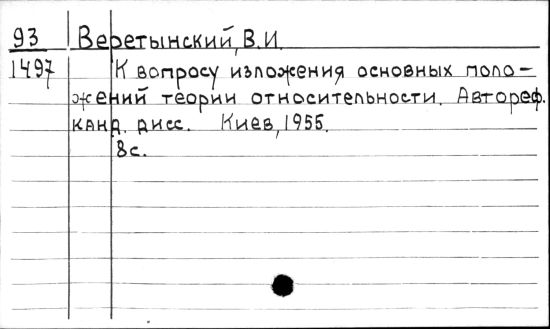 93 Веретынский, В.И.
1497 К вопросу изложения основных поло-
жений теории относительности. Автореф.
канд. дисс. Киев, 1955.
8с.